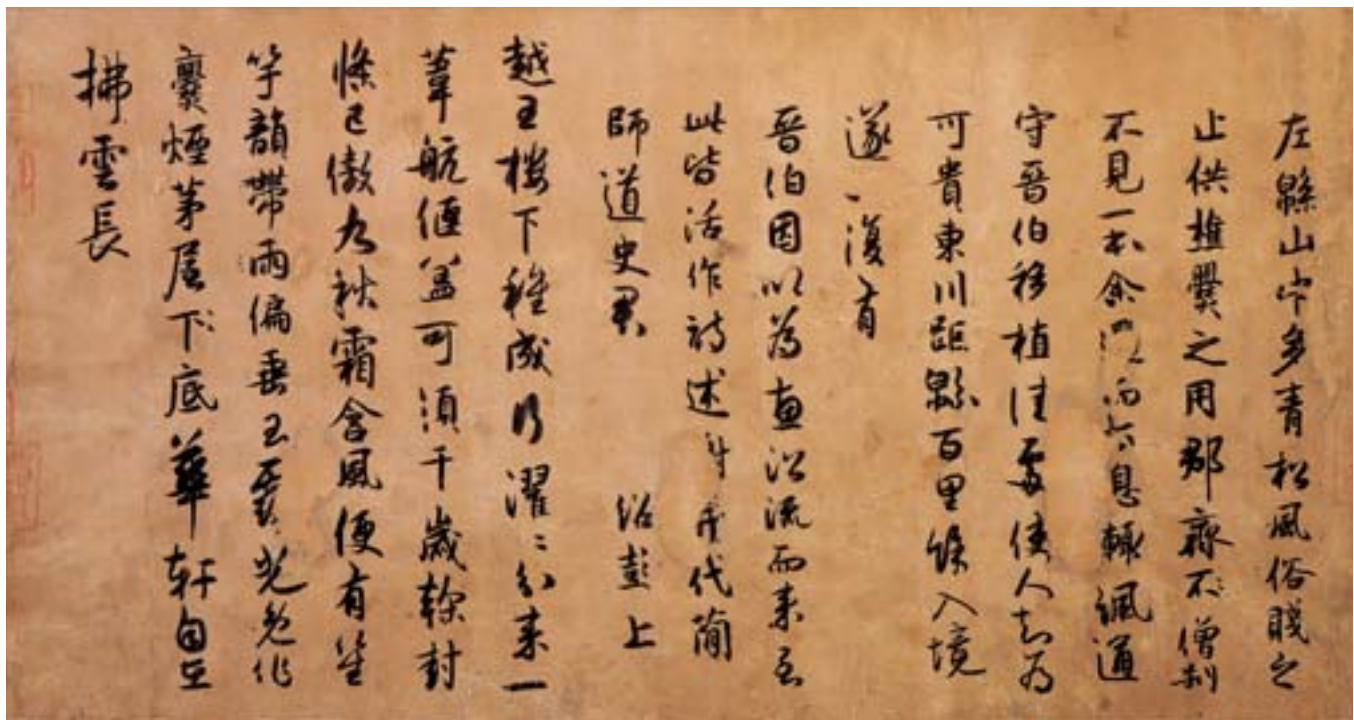 左緜山中多青松風俗賤之
止供樵爨之用郡齋不僧刹
不見一本余過而太息輒諷通
守晉伯移植佳處使人知為
可貴東川距緜百里餘入境
遂一復有
晉伯因以為惠沿流而來至
此皆活作詩述代簡
師道史君 紹彭上
越王樓下種成行濯濯分來一
葦航偃蓋可須千歲榦封
條已傲九秋霜含風便有笙
竽韻帶雨偏垂玉露光免作
爨煙茅屋下底華軒自在
拂雲長